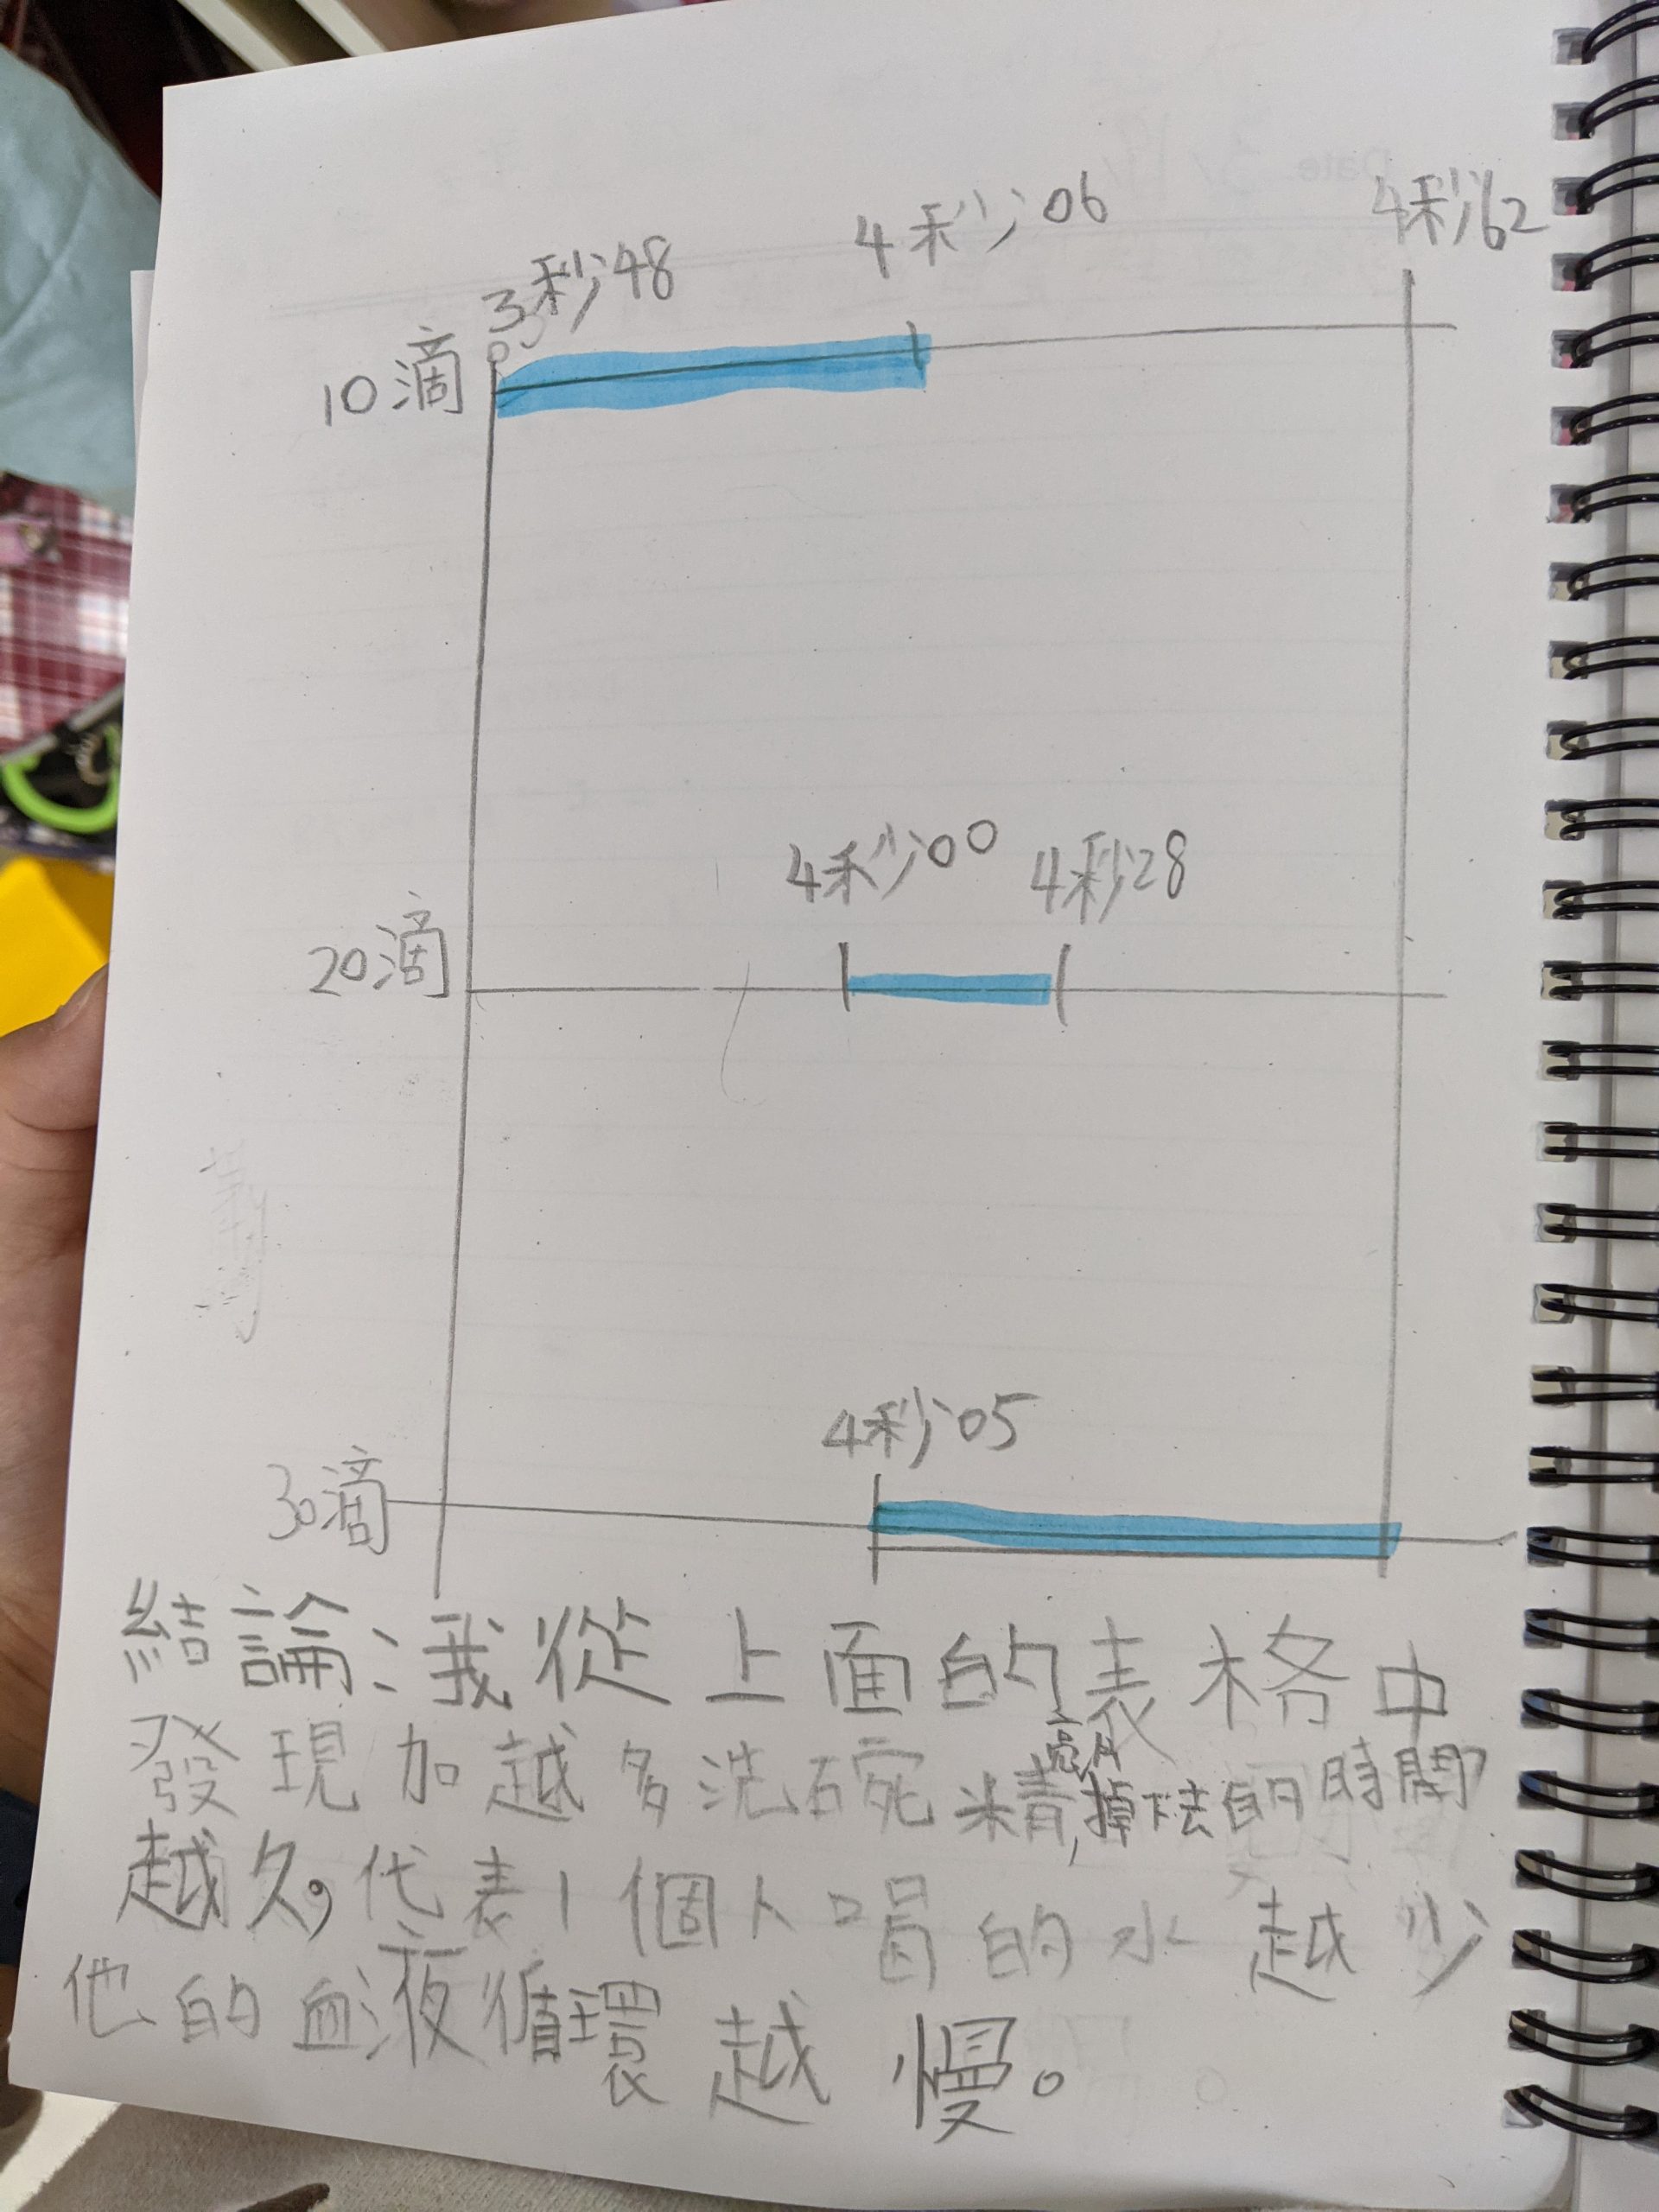 3秒48
4秒06
4秒62
10滴
4秒00
4秒28
20滴
4秒05
30滴
結論：我從上面的表格中
發現加越多洗碗精,掉下去的時間
越久,代表1個人喝的水越少
他的血液循環越慢。